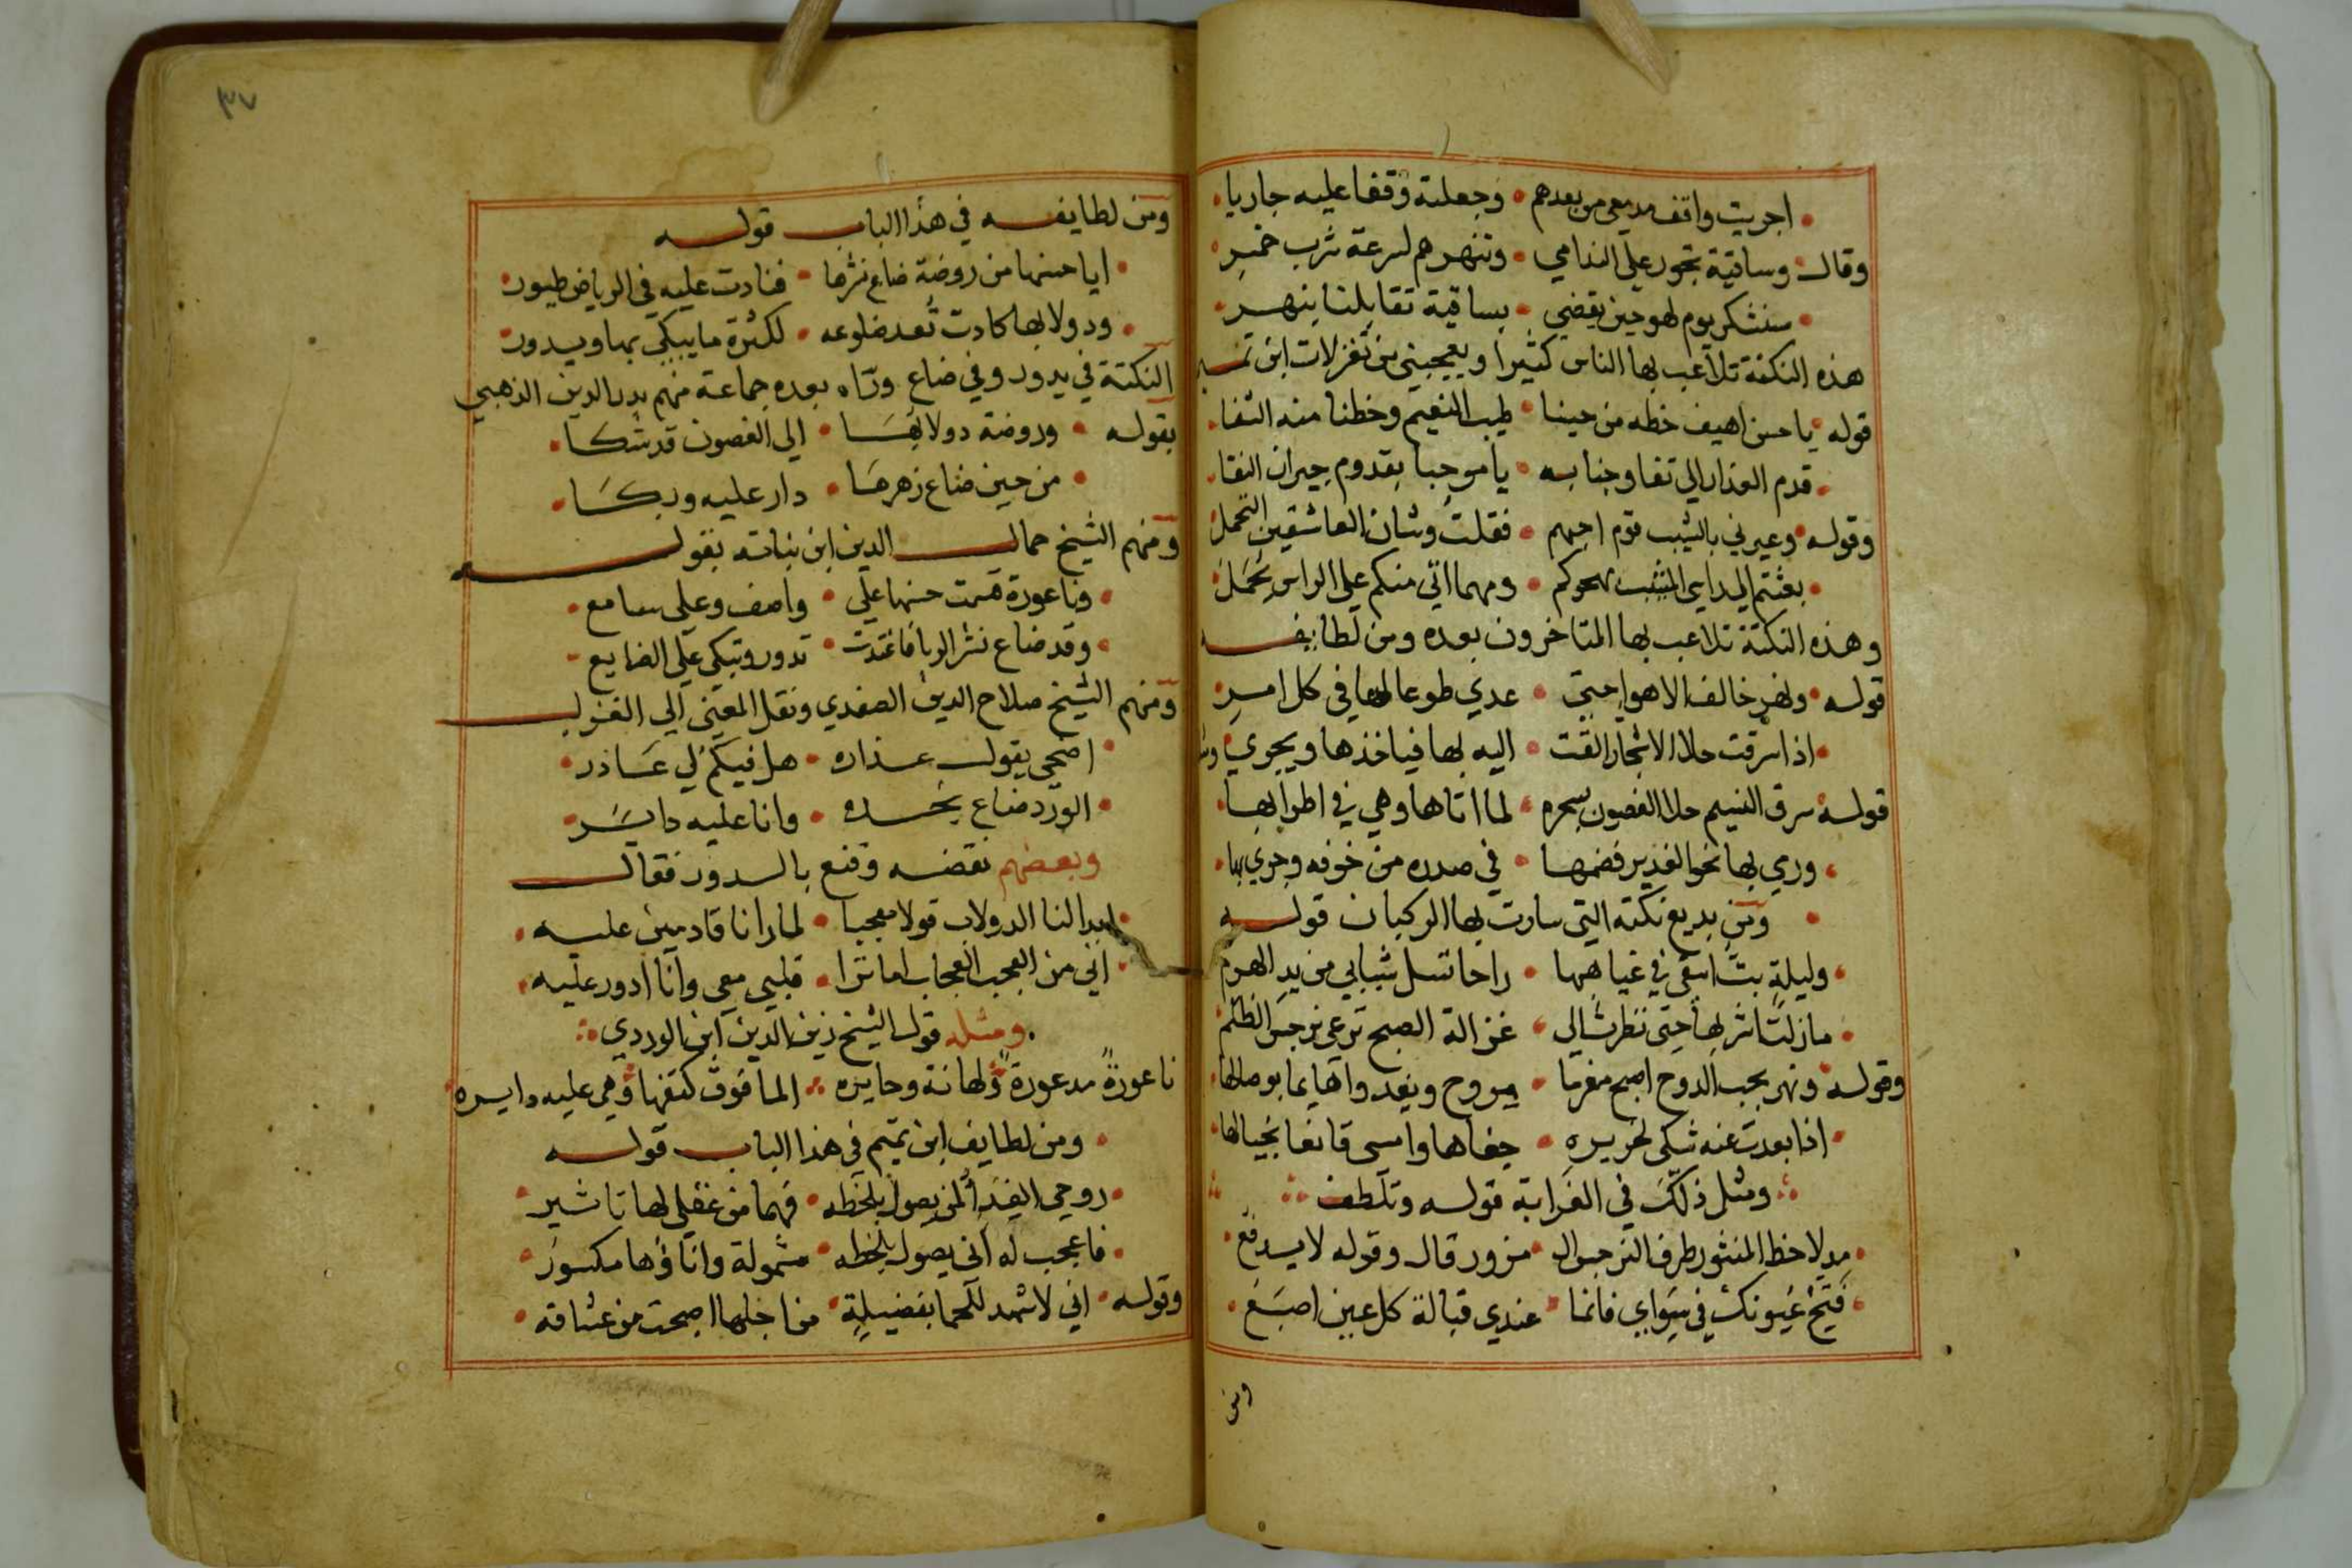 اجريت واقف مدمعي من بعدهم • وجعلته وقفا عليه جاريا
وقال وساقية تجور على الندامي • وتنهرهم لسرعة شرب خمر
سنشكر يوم لهو حين يقضي • بساقية تقابلنا بنهر
هذه النكتة تلاعب بها الناس كثيرا ويعجبني من تغزلات ابن تميم
قوله يا حسن اهيف خطه من حيننا • طيب النعيم وخطنا منه الشقا
قدم العذار الي تقا وجنابه • يا موجبا بقدوم جيران النقا
وقوله وعيرني بالشيب قوم احبهم • فقلت وشان العاشقين التحمل
بعثتم الي راسي المشيب بهجركم • ومهما اتي منكم على الراس يحمل
وهذه النكتة تلاعب بها المتاخرون بعده ومن لطايفه
قوله ونهر خالف الاهوا حتى • غدي طوعا لها في كل امر
اذا سرقت حلا الاشجار القت • اليه بها فياخذها ويجري
قوله سرق النسيم حلا الغصون بسحره • لما اتاها وهي في اطرابها
ورمي بها نحو الغدير فضمها • في صدره من خوفه وجري بها
ومن بديع نكته التي سارت بها الركبان قوله
وليلة بت اسقي في غياهبها • راحا تسل شبابي من يد الهرم
مازلت اشربها حتى نظرت الي • غزالة الصبح ترعي نرجس الظلم
وقوله ونهر بحب الدوح اصبح مغرما • يروح ويغدوا هايما بوصالها
اذا بعدت عنه شكي بخريره • جفاها وامسى قانعا بخيالها
ومثل ذلك في الغرابة قوله وتلطف
مد لاحظ المنثور طرف النرجس ال • مزور قال وقوله لا يدفع
فتح عيونك في سواي فانما • عندي قبالة كل عين اصبع
ومن
٣٧
ومن لطايفه في هذا الباب قوله
ايا حسنها من روضة ضاع نشرها • فنادت عليه في الرياض طيور
ودولابها كادت تعد ضلوعه • لكثرة ما يبكي بها ويدور
النكتة في يدور وفي ضاع وراه بعده جماعة منهم بدر الدين الذهبي
بقوله • وروضة دولابها • الى الغصون قد شكا
من حين ضاع زهرها • دار عليه وبكا
ومنهم الشيخ جمال الدين ابن نباته بقوله
وناعورة قسمت حسنها على • واصف وعلى سامع
وقد ضاع نشر الربا فاغتدت • تدور وتبكي على الضايع
ومنهم الشيخ صلاح الدين الصفدي ونقل المعنى الي الغزل
اضحي يقول عذاره • هل فيكم لي عاذر
الورد ضاع بخده • وانا عليه داير
وبعضهم نقضه وقنع بالدور فقال
ابدا لنا الدولاب قولا معجبا • لما رانا قادمين عليه
اني من العجب العجاب اما ترا • قلبي معي وانا ادور عليه
ومثله قول الشيخ زين الدين ابن الوردي
ناعورة مدعورة ولهانة وحايره • الما فوق كتفها وهي عليه دايره
ومن لطايف ابن تميم في هذا الباب قوله
روحي الفدا لمن يصول بلحظه • فهما من عقلي لها تاثير
فاعجب له اني يصول بلحظه • مشمولة وانا وها مكسور
وقوله • اني لاشهد للحما بفضيلة • من اجلها اصبحت من عشاقه